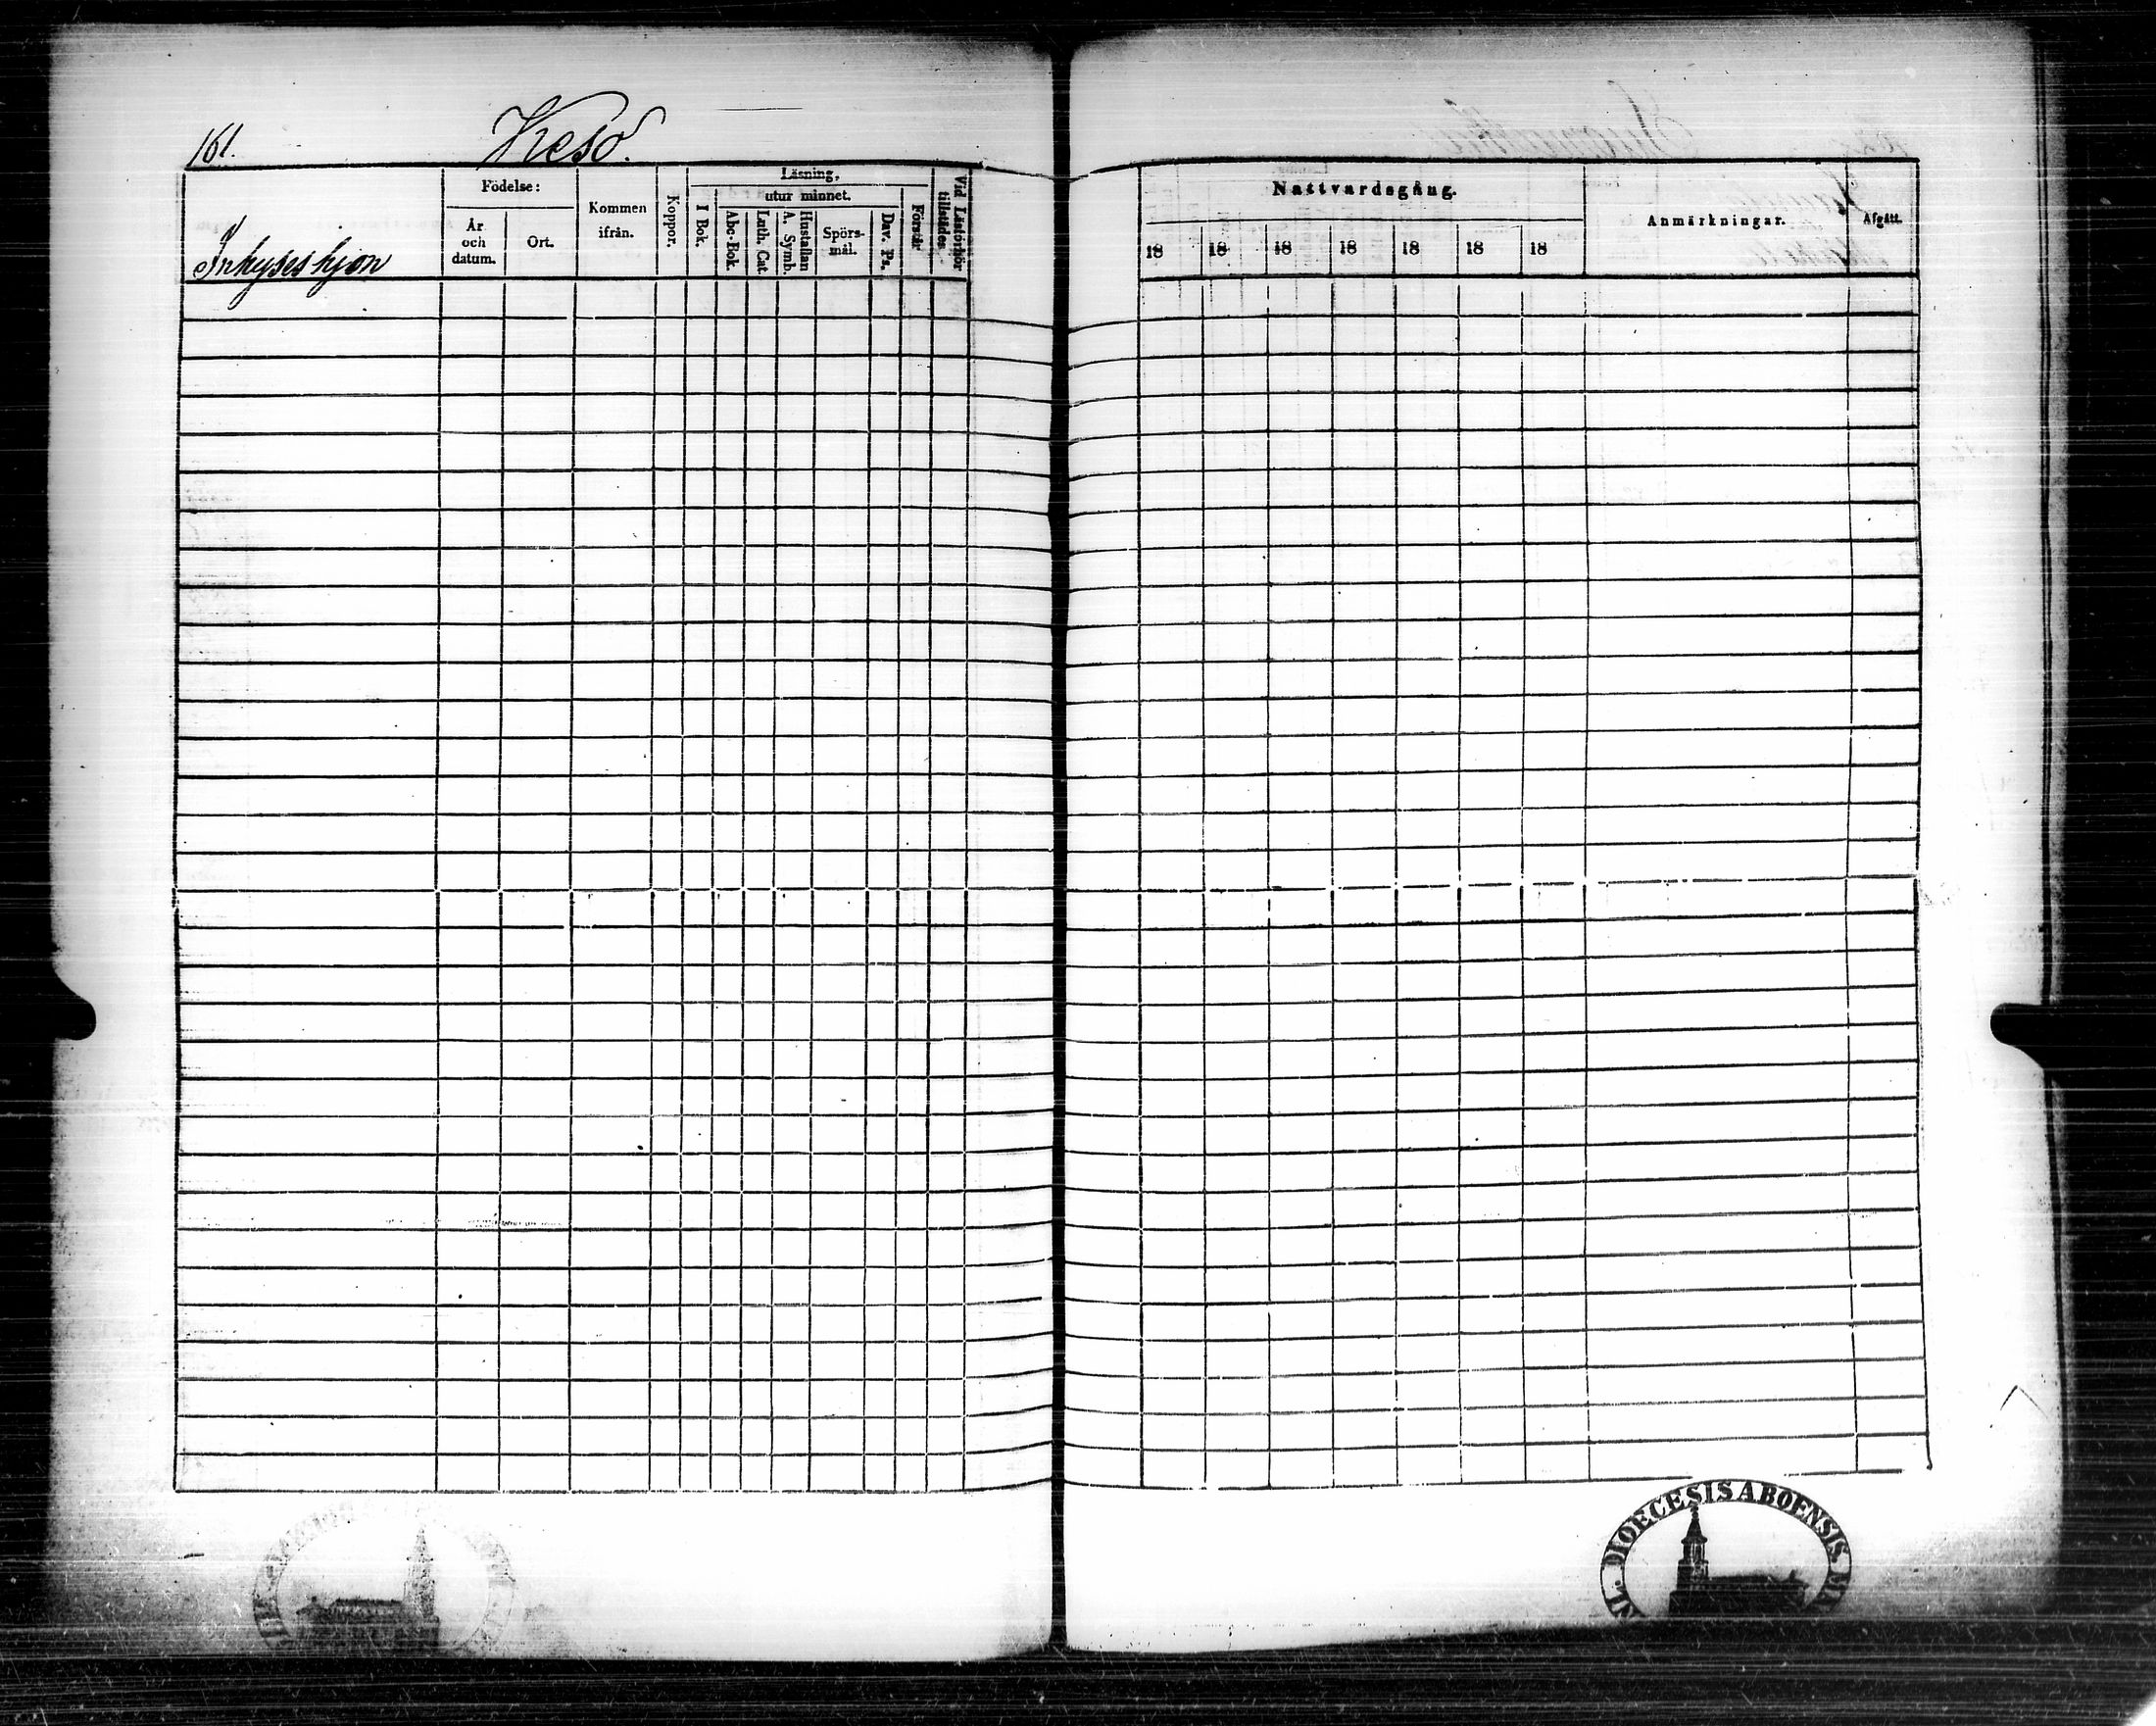 161.
Keso.
Inhyseshjon
Födelse:
År och datum.
Ort.
Kommen ifrån.
Koppor.
Läsning,
I Bok.
utur minnet.
Abc-Bok.
Luth. Cat.
Hustaflan A. Symb.
Spörsmål.
Dav. Ps.
Förstår
Vid Läsförhör tillstädes.
Nattvardsgång.
18 18 18 18 18 18 18
Anmärkningar.
Afgått.
DIOECESIS ABOENSIS.